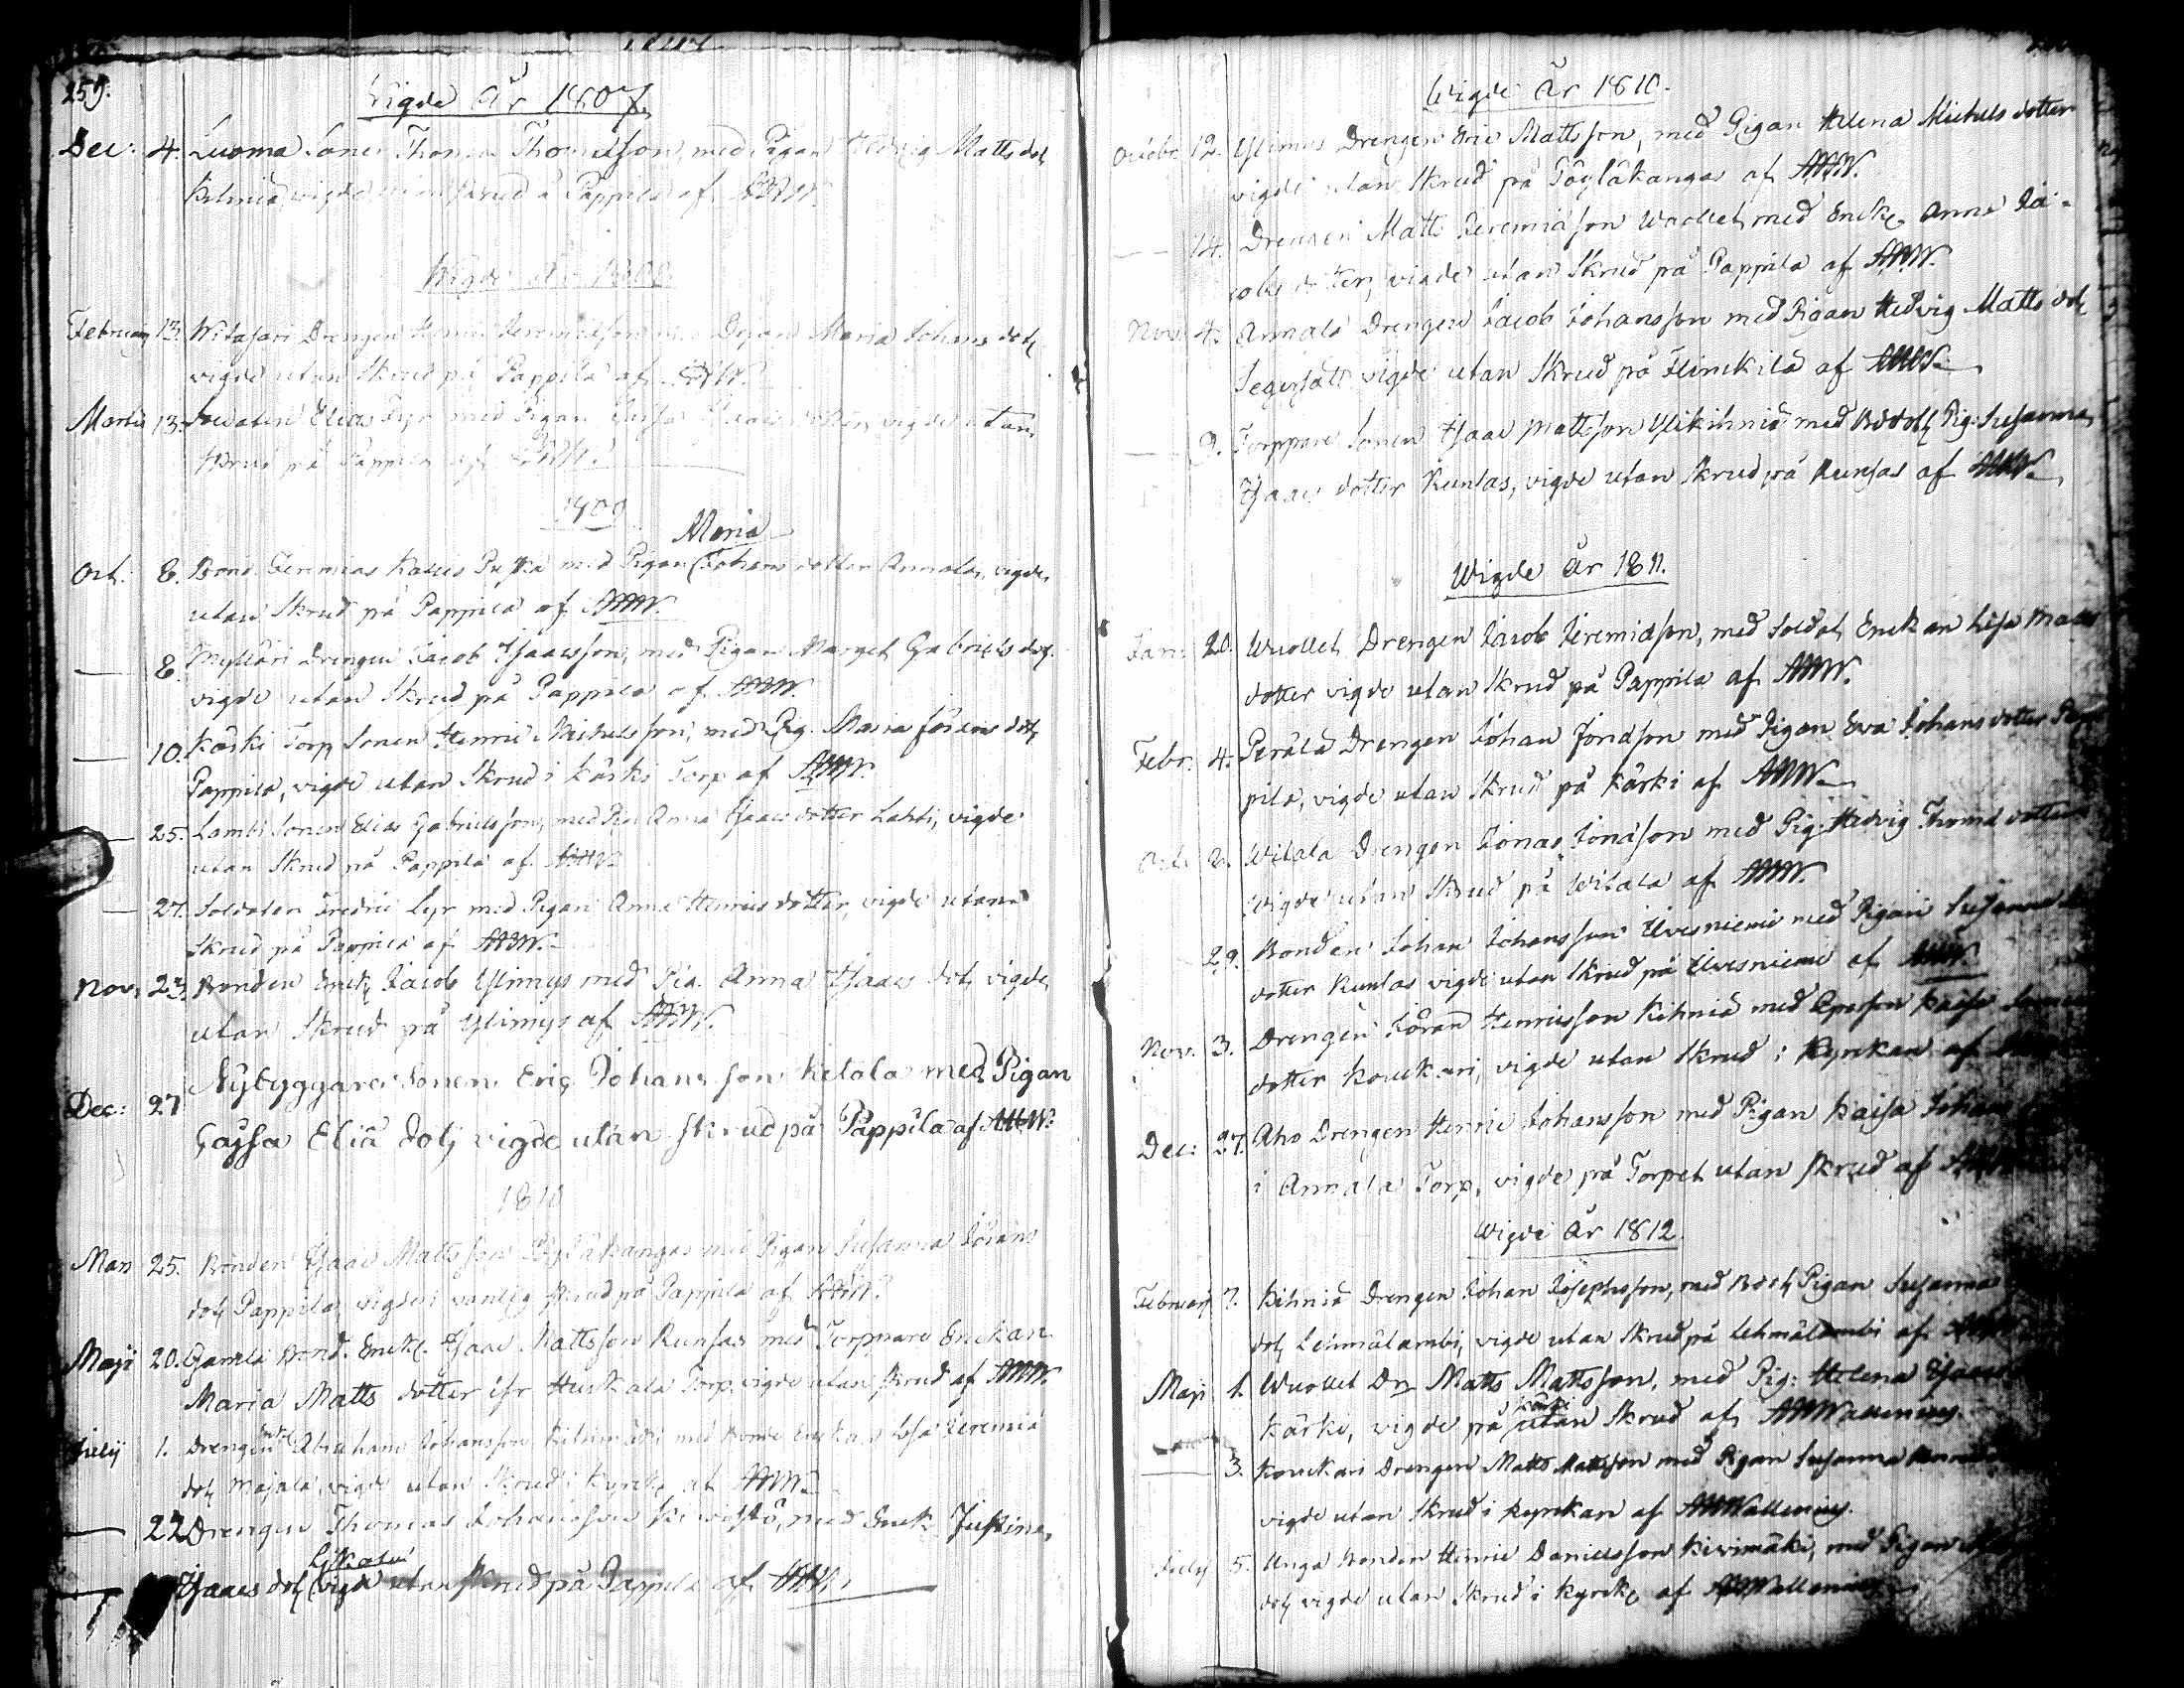 259.
Vigde År 1807.
Dec: 4. Luoma Sonen Thomas Thomasson, med Pigan Hedvig Matts dot
Kihniä, vigde utan skrud å Pappila af AHW.
Wigde år 1808
February 13. Witasari Drengen Henric Jeremiasson med Pigan Maria Johans dot
vigde utan Skrud på Pappila af AHW.
Martii 13. Soldaten Elias Fyr med Pigan Caisa Isaacs dotter, vigde utan
skrud på Pappila af AHW.
1809
Maria
Oct. 8. Bond. Jeremias Kauis Puska med Pigan Johans dotter Annala, vigde
utan Skrud på Pappila af AHW.
8. Mylläri Drengen Jacob Isaacsson, med Pigan Marget Gabriels dot.
vigde utan Skrud på Pappila af AHW.
10. Käski Torp Sonen Henric Michelsson, med Pig. Maria Jörans dot
Pappila, vigde utan Skrud i Käski Torp af AHW.
25. Lambi Sonen Elias Gabrielsson, med Pig Anna Isaacs dotter Lahti, vigde
utan Skrud på Pappila af AHW.
27. Soldaten Fredric Lyr med Pigan Anna Henrics dotter, vigde utan
Skrud på Pappila af AHW.
Nov. 23. Bonden Enckl Jacob Ylimys med Pig. Anna Isaacs dot vigde
utan Skrud på Ylimys af AHW.
Dec: 27 Nybyggare Sonen Eric Johansson Ketola med Pigan
Cajsa Eliä dot vigde utan skrud på Pappila af AHW:
1810
Mars 25. Bonden Isaac Mattsson Pöyläkangas med Pigan Susanna Jörans
dot Pappila, vigde i vanlig skrud på Pappila af AHW.
Maji 20. Gamla Bond. Enckl. Isaac Mattsson Runsas med Torpare Enckan
Maria Matts dotter ifr Huskala Torp, vigde utan skrud af AHW.
July 1. Drengen Abraham Johansson med Bonde Enckan Lisa Jeremiä
dot Majala, vigde utan Skrud i Kyrck, af AHW.
22 Drengen Thomas Johansson Kivistö, med Enck Justina,
Isaacs dot vigde utan Skrud på Pappila af AHW.
Wigde År 1810.
Octobr 12. Ylimys Drengen Eric Mattsson, med Pigan Helena Michels dotter
vigde utan Skrud på Pöyläkangas af AHW.
14. Drengen Matts Jeremiasson Wuollet, med Enck. Anna Ja-
cobs dotter, vigde utan Skrud på Pappila af AHW.
Nov. 4. Annala Drengen Jacob Johansson med Pigan Hedvig Matts dot
Segersätt vigde utan Skrud på Flinckilä af AHW.
9. Torppare Sonen Isaac Mattsson Ylikihniä med Bddott Pig: Susanna
Isaacs dotter Runsas, vigde utan Skrud på Runsas af AHW.
Wigde År 1811.
Jan: 20. Wuollet Drengen Jacob Jeremiasson, med Soldat Enckan Lisa Matts
dotter vigde utan Skrud på Pappila af AHW.
Febr. 4. Perälä Drengen Johan Jonasson med Pigan Eva Johans dotter Pap
pila, vigde utan Skrud på Kärki af AHW.
Oct. 2. Witala Drengen Jonas Jonasson med Pig: Hedvig Thomas dotter
Vigde utan Skrud på Witala af AHW.
29. Bonden Johan Johansson Ilvesniemi med Pigan Susanna
dotter Runsas vigde utan Skrud på Ilvesniemi af AHW.
Nov. 3. Drengen Jöran Henricsson Kihniä med Qpersson Kaisa
dotter Kouckari, vigde utan Skrud i Kyrckan af
Dec: 27. Aho Drengen Henric Johansson med Pigan Kaisa Johans
i Annala Torp, vigde på Torpet utan skrud af
Wigde År 1812.
Februari 7. Kihniä Drengen Johan Josephsson, med Bdott Pigan Susanna
dot Lehmälambi, vigde utan Skrud på Lehmälambi af
Maji 1. Wuollet Dr. Matts Mattsson, med Pig: Helena Isaacs
Kärki, vigde på Kärki utan Skrud af AHWallenius.
3. Kouckari Drengen Matts Mattsson med Pigan Susanna
vigde utan Skrud i Kyrckan af AHWallenius.
July 5. Unga Bonden Henric Danielsson Kivimäki, med Pigan
dot vigde utan Skrud i Kyrck. af AHWallenius